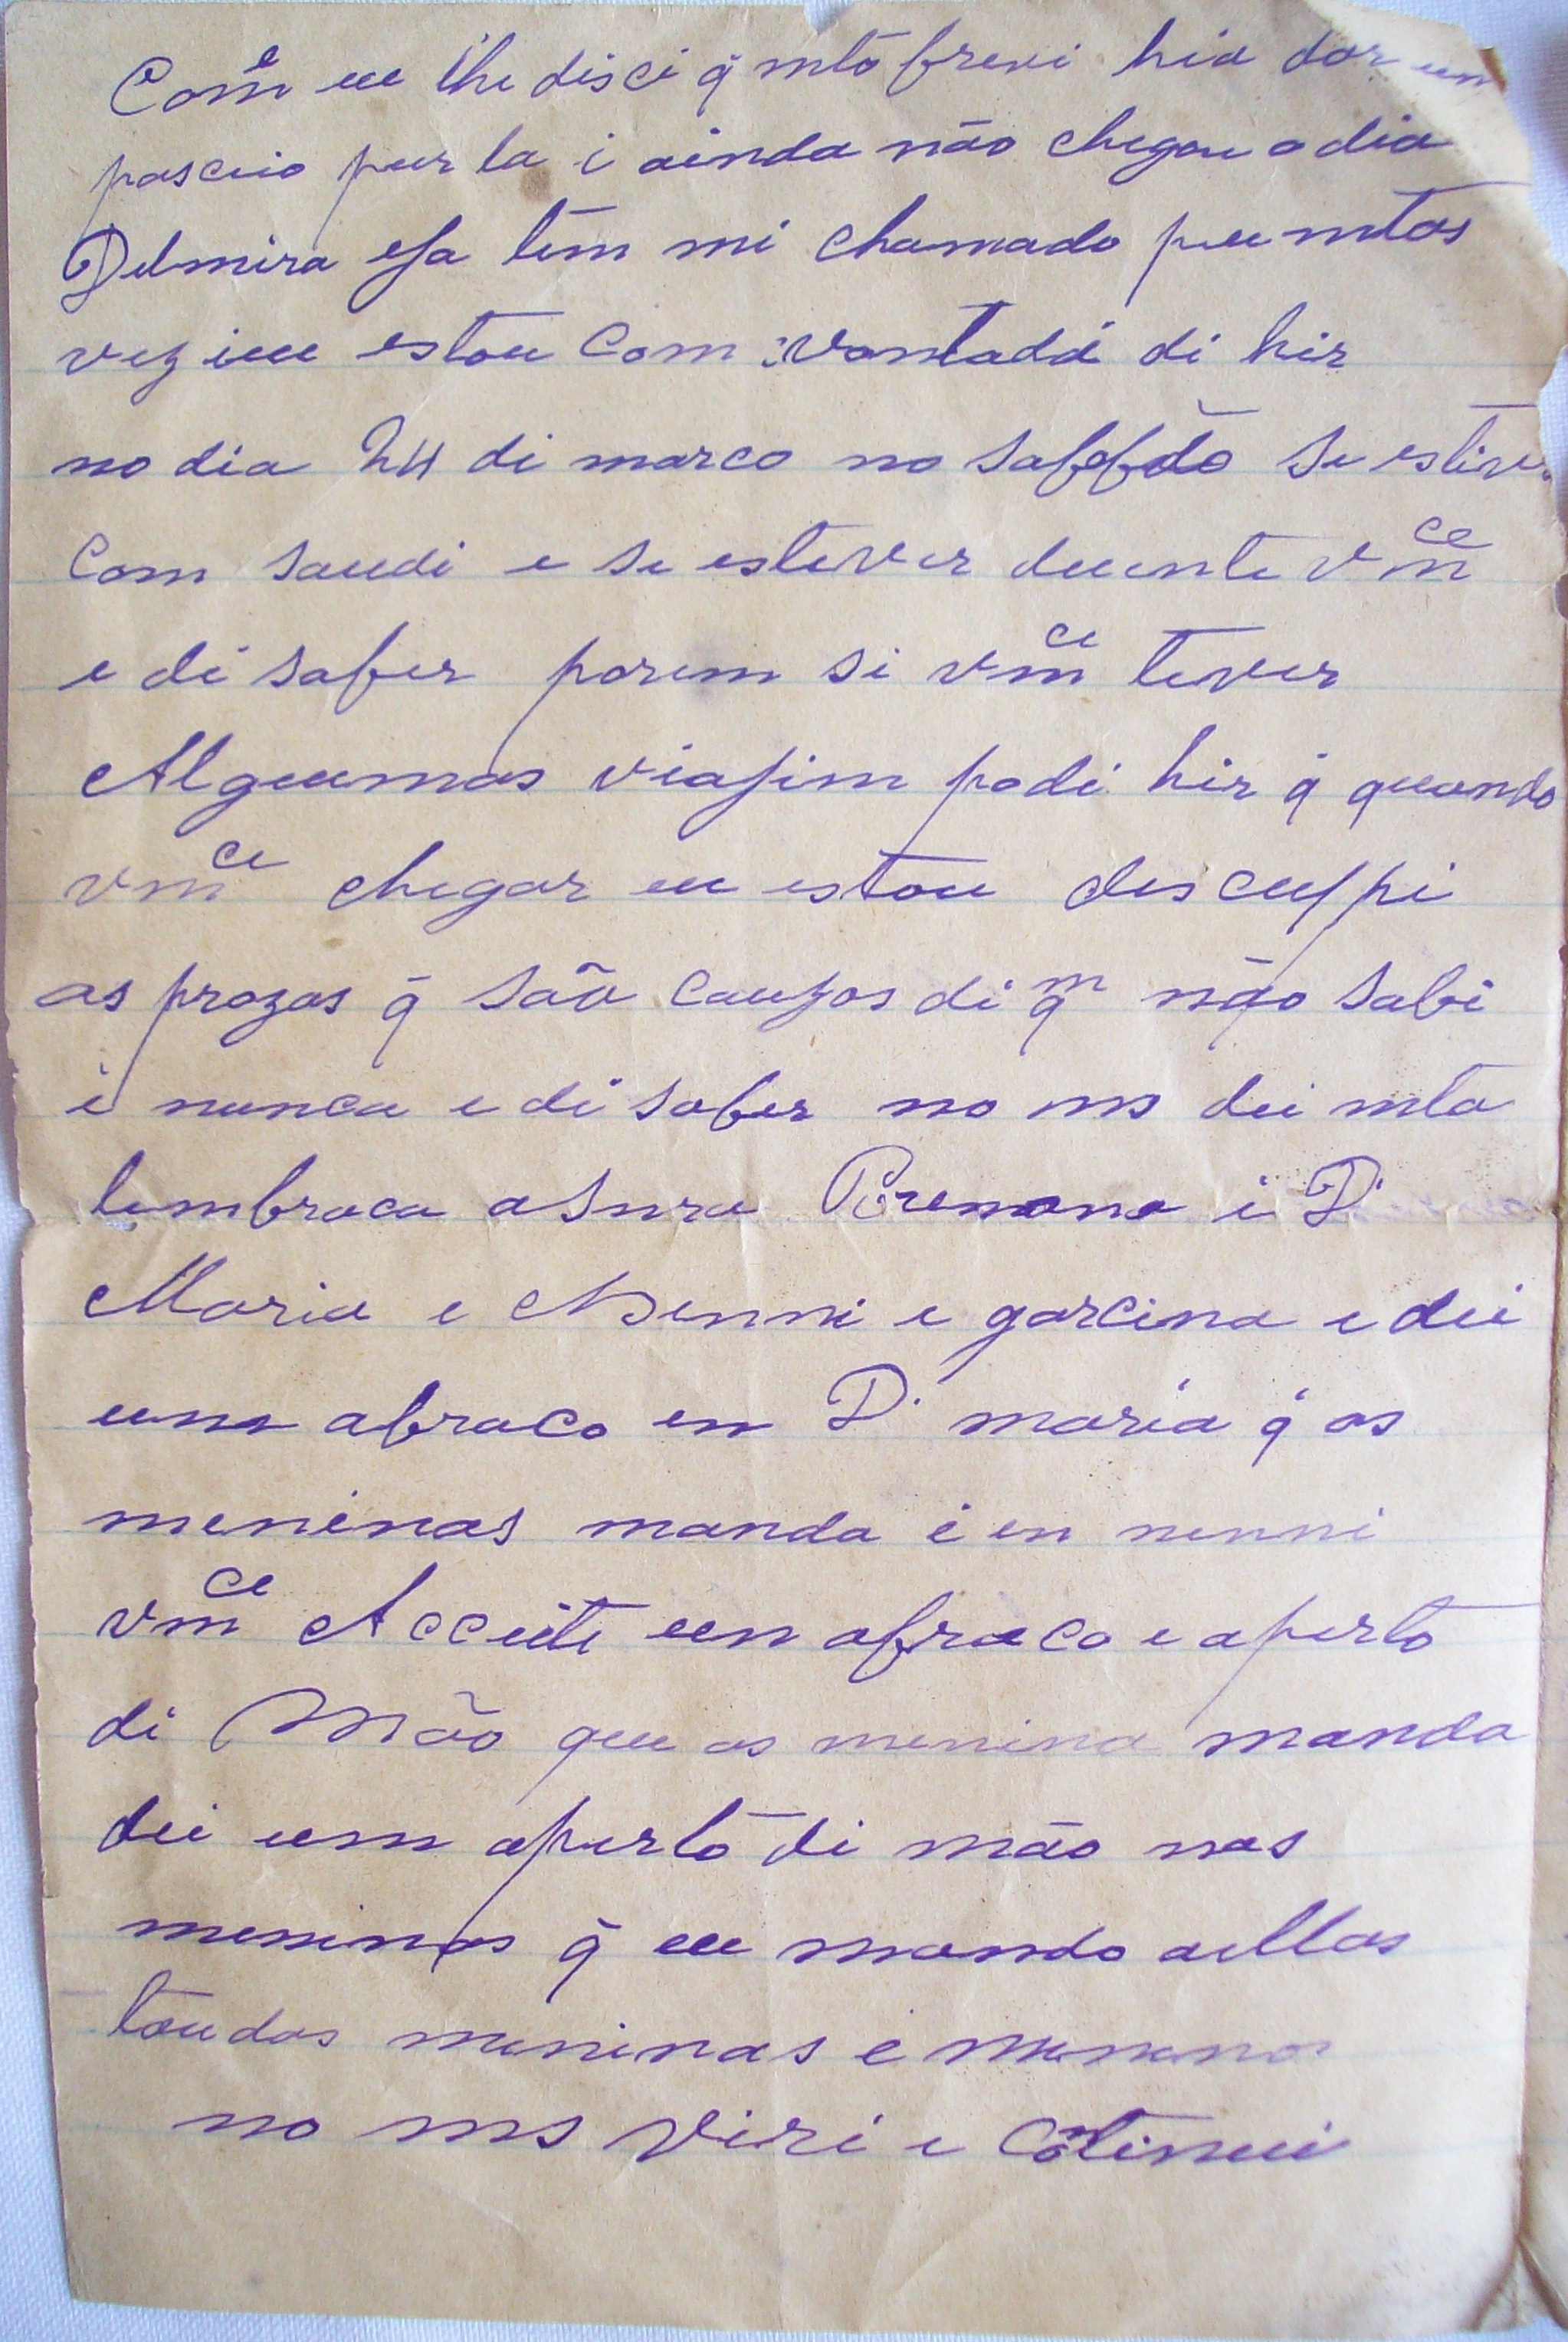 Come eu lhe disci q̃ mto brevi hia dar um
pasceio pur la i ainda não chegou o dia
Delmira esa tem mi chamado pur mtas
vez i eu estou com vontadi di hir
no dia 24 di marco no sabbdo se estiver
com saudi e se estever duente vmce
e di saber porem si vmce tever
Algumas viajim podi hir q̃ quando
vmce chegar eu estou desculpi
as prozas q̃ são cauzos di qm não sabi
i nunca e di saber no ms dei mta
lembraca a Snra Romana i D.
Maria e Nenni e garcina e dei
um abraco en D. maria q̃ as
meninas manda i en nenni
vmce Acceiti un abraco e aperto
di Mão que as menina manda
dei um aperto di mão nas
meninas q̃ eu mando a ellas
toudas meninas e menino
no ms viri e cotinui